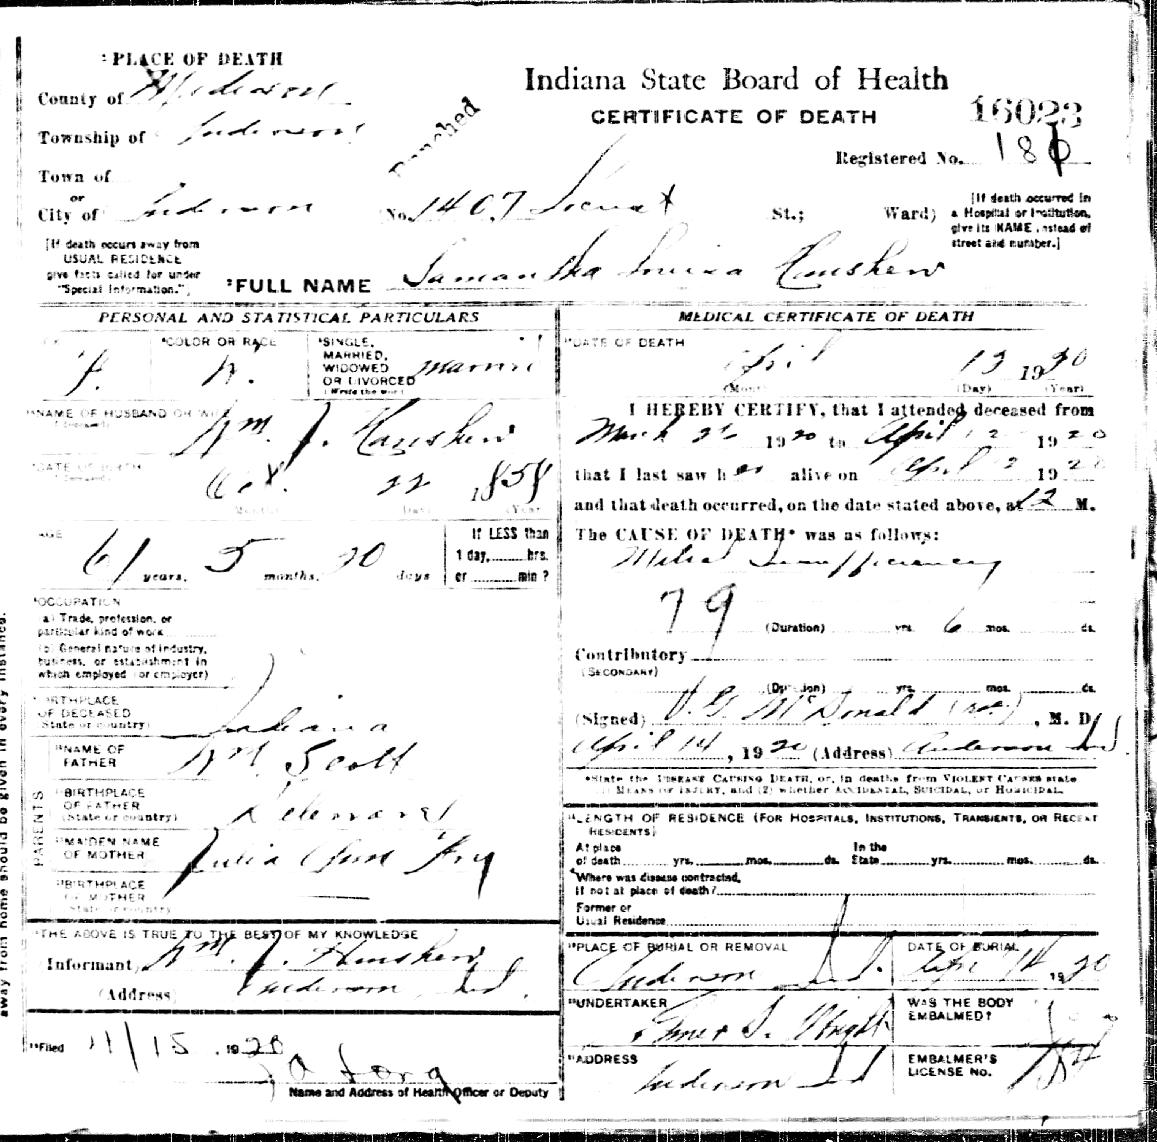 PLACE OF DEATH
County of Madison
Township of Anderson
Town of
or
City of Anderson (No. 1407 Locust St.; Ward)
Punched
Indiana State Board of Health
CERTIFICATE OF DEATH
16023
Registered No. 186
[If death occurred in
a Hospital or Institution,
give its NAME instead of
street and number.]
[If death occurs away from
USUAL RESIDENCE
give facts called for under
"Special Information."]
FULL NAME Samantha Luiza Hanshew
PERSONAL AND STATISTICAL PARTICULARS
F.
COLOR OR RACE
W.
SINGLE,
MARRIED,
WIDOWED
OR DIVORCED
(Write the word)
married
NAME OF HUSBAND OR WIFE
Wm. J. Hanshew
DATE OF BIRTH
Oct. 22 1858
(Month) (Day) (Year)
AGE
61 years, 5 months, 20 days
If LESS than
1 day, hrs.
or min?
OCCUPATION
(a) Trade, profession, or
particular kind of work
(b) General nature of industry,
business, or establishment in
which employed (or employer)
BIRTHPLACE
OF DECEASED
(State or country)
Indiana
PARENTS
NAME OF
FATHER
Wm. Scott
BIRTHPLACE
OF FATHER
(State or country)
MAIDEN NAME
OF MOTHER
Julia Ann Fry
BIRTHPLACE
OF MOTHER
(State or country)
THE ABOVE IS TRUE TO THE BEST OF MY KNOWLEDGE
Informant Wm. J. Hanshew
(Address) Anderson Ind.
Filed 4/15, 1920
Name and Address of Health Officer or Deputy
MEDICAL CERTIFICATE OF DEATH
DATE OF DEATH
April 12 1920
(Month) (Day) (Year)
I HEREBY CERTIFY, that I attended deceased from
March 1920 to April 12 1920
that I last saw her alive on April 1920
and that death occurred, on the date stated above, at 12 M.
The CAUSE OF DEATH* was as follows:
Mitral Insufficiency
79
(Duration) yrs. 6 mos. ds.
Contributory
(SECONDARY)
(Duration) yrs. mos. ds.
(Signed) McDonald, M. D.
April 14, 1920 (Address) Anderson Ind.
*State the DISEASE CAUSING DEATH, or, in deaths from VIOLENT CAUSES state
(1) MEANS OF INJURY, and (2) whether ACCIDENTAL, SUICIDAL, OR HOMICIDAL.
LENGTH OF RESIDENCE (FOR HOSPITALS, INSTITUTIONS, TRANSIENTS, OR RECENT
RESIDENTS)
At place In the
of death yrs. mos. ds. State yrs. mos. ds.
Where was disease contracted,
If not at place of death?
Former or
Usual Residence
PLACE OF BURIAL OR REMOVAL
Anderson Ind.
DATE OF BURIAL
Apr 14 1920
UNDERTAKER
Elmer S. Wright
WAS THE BODY
EMBALMED?
ADDRESS
Anderson Ind
EMBALMER'S
LICENSE NO.
away from home should be given in every instance.